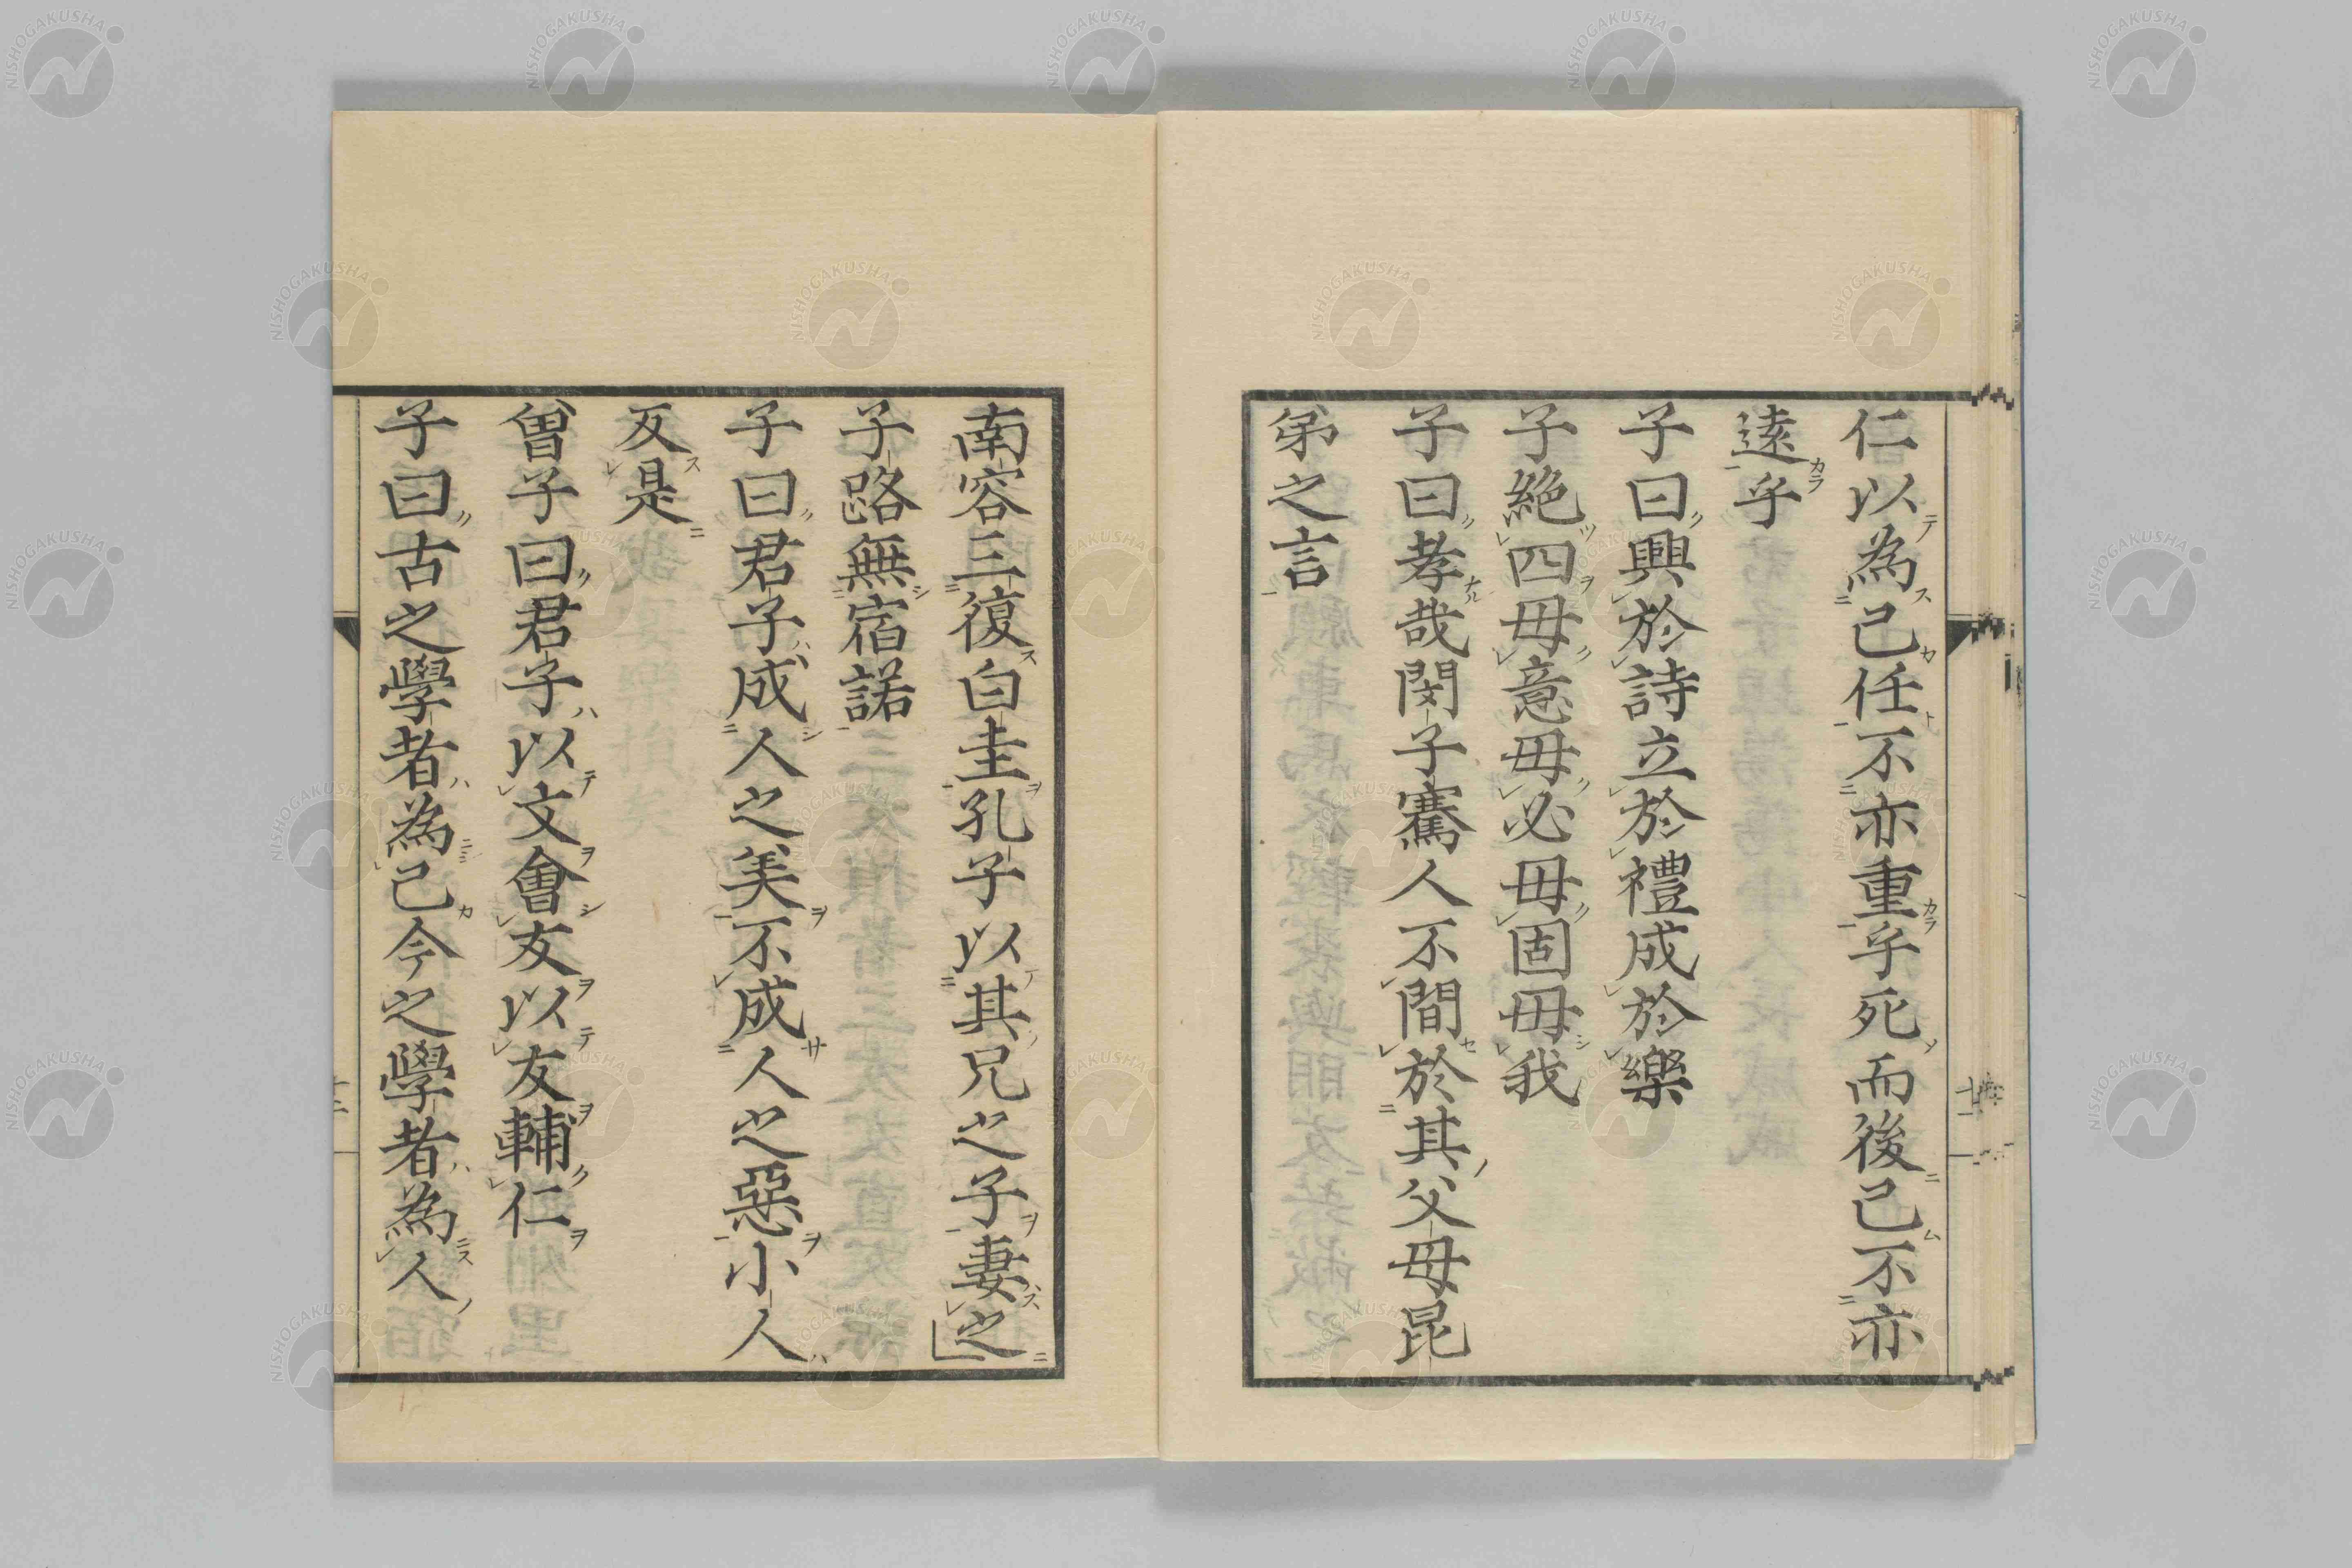 仁以為己任不亦重乎死而後已不亦
遠乎
子曰興於詩立於禮成於樂
子絶四毋意毋必毋固毋我
子曰孝哉閔子騫人不間於其父母昆
弟之言
南容三復白圭孔子以其兄之子妻之
子路無宿諾
子曰君子成人之美不成人之惡小人
反是
曾子曰君子以文會友以友輔仁
子曰古之學者為己今之學者為人
NISHOGAKUSHA